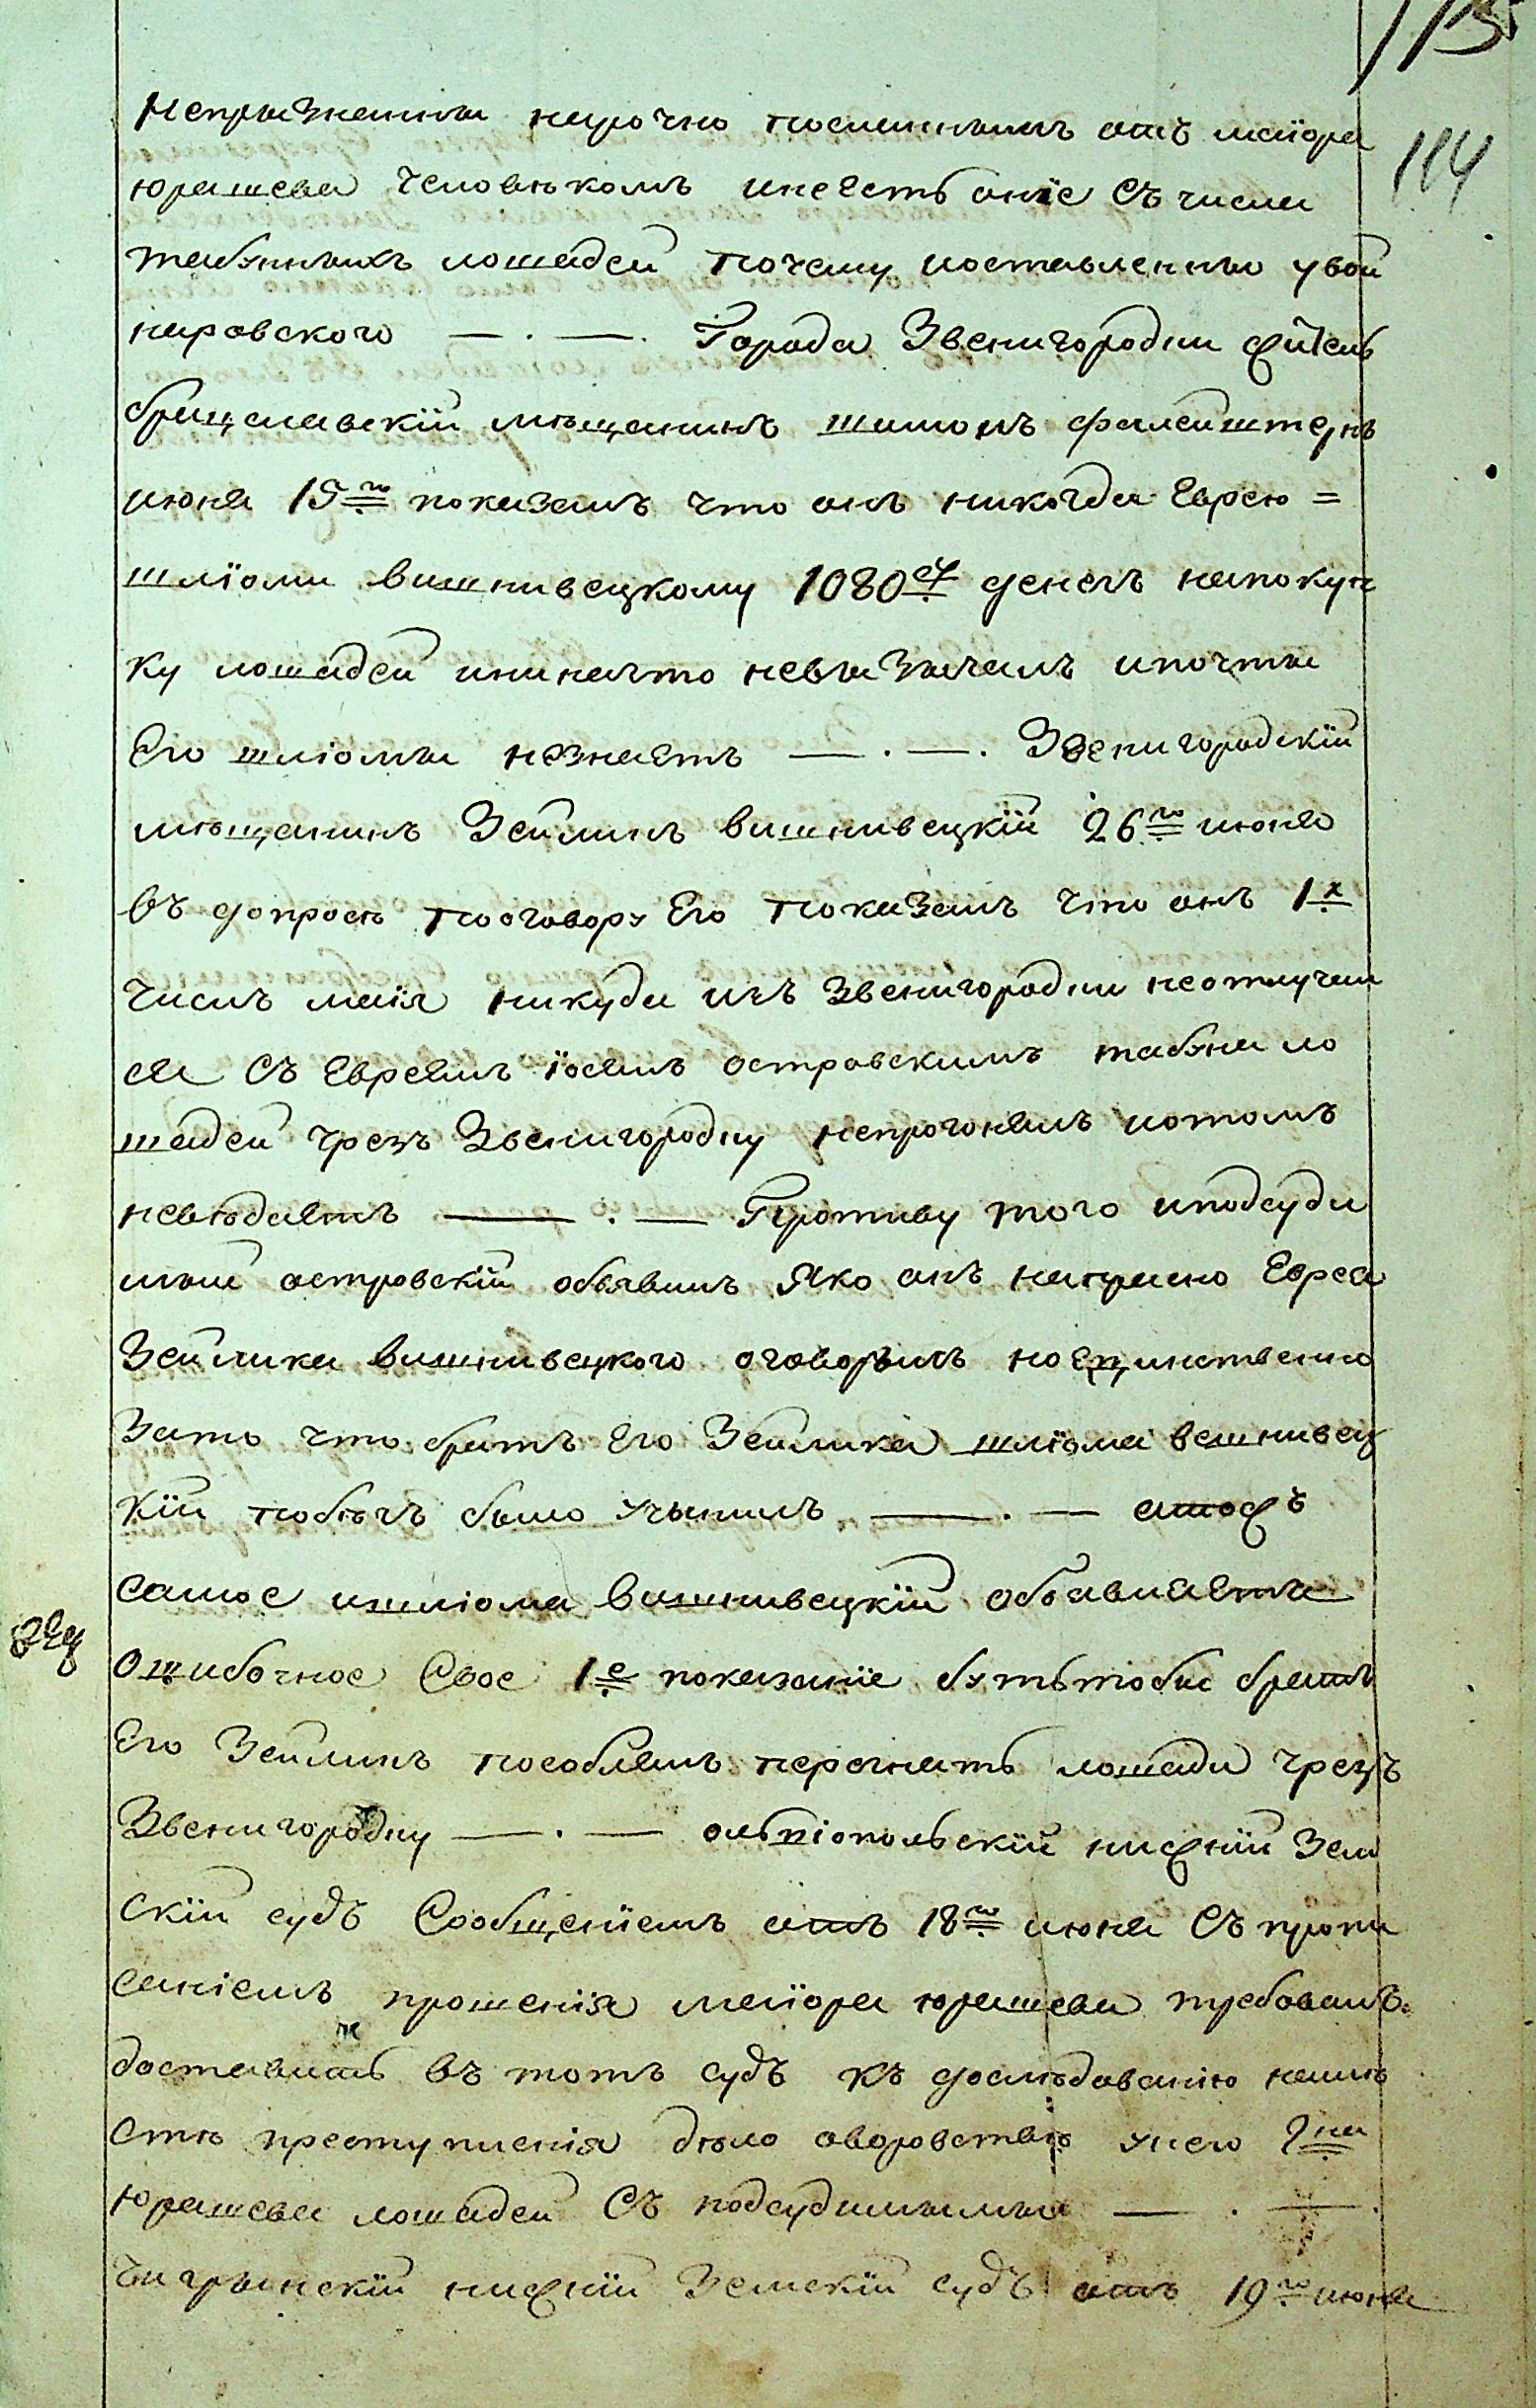 113
114
Непризнанны нарочно посланнымъ отъ маіора
юрашева человѣкомъ инеесть оніе Съ числа
табунныхъ лошадей почему иоставленны увой
наровского — . — . Города Звенигородки житель
брацлавскій мѣщанинъ шимонъ фалейштернъ
июня 15го показалъ что онъ никогда Еврею =
шліоми вишнивецкому 1080 денегъ напокуп
ку лошадей ининашто невызычалъ ипочты
Его шліомы незнаетъ — . — . Звенигородскій
мѣщанинъ Зейликъ вишнивецкій 26го июня
въ допросѣ поогвору Его показалъ что онъ 1х
числъ маія никуда изъ Звенигородки неотлучал
ся Съ Евреемъ іосемъ островскимъ табуна ло
шадей чрезъ Звенигородку непрогонялъ иотомъ
невѣдаетъ — . — Противу того иподсуди
мый островскій обьявилъ Яко онъ напрасно Еврея
Зейлика вишнивецкого оговорилъ ноединственно
Зато что братъ Его Зейлика шліома вишнивец
кій побѣгъ было учынилъ — . — атожъ
самое ишліома вишнивецкій обоявляетъ
Ошибочное Свое 1е показаніе бутьтобы братъ
Его Зейликъ пособлялъ перегнать лошади чрезъ
Звенигородку — . — ольвіопольскій нижній Зем
скій судъ Сообщеніемъ отъ 18го июня Съ пропи
саніемъ прошенія маіора юрашева требовалъ
доставить въ тотъ судъ къ дослѣдованію намѣ
стѣ преступленія дѣло оворовствѣ унего
юрашева лошадей Съ подсудимыми — . — .
Чигрынскій нижній Земскій судъ отъ 19го июня